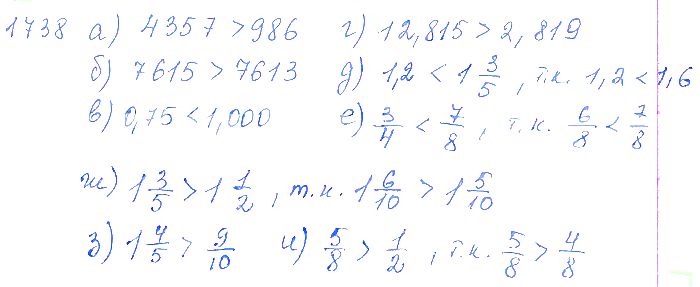 1738 а) 4357 > 986 г) 12,815 > 2,819
б) 7615 > 7613 д) 1,2 < 1 3/5, т.к. 1,2 < 1,6
в) 0,75 < 1,000 е) 3/4 < 7/8, т.к. 6/8 < 7/8
ж) 1 3/5 > 1 1/2, т.к. 1 6/10 > 1 5/10
з) 1 4/5 > 9/10 и) 5/8 > 1/2, т.к. 5/8 > 4/8